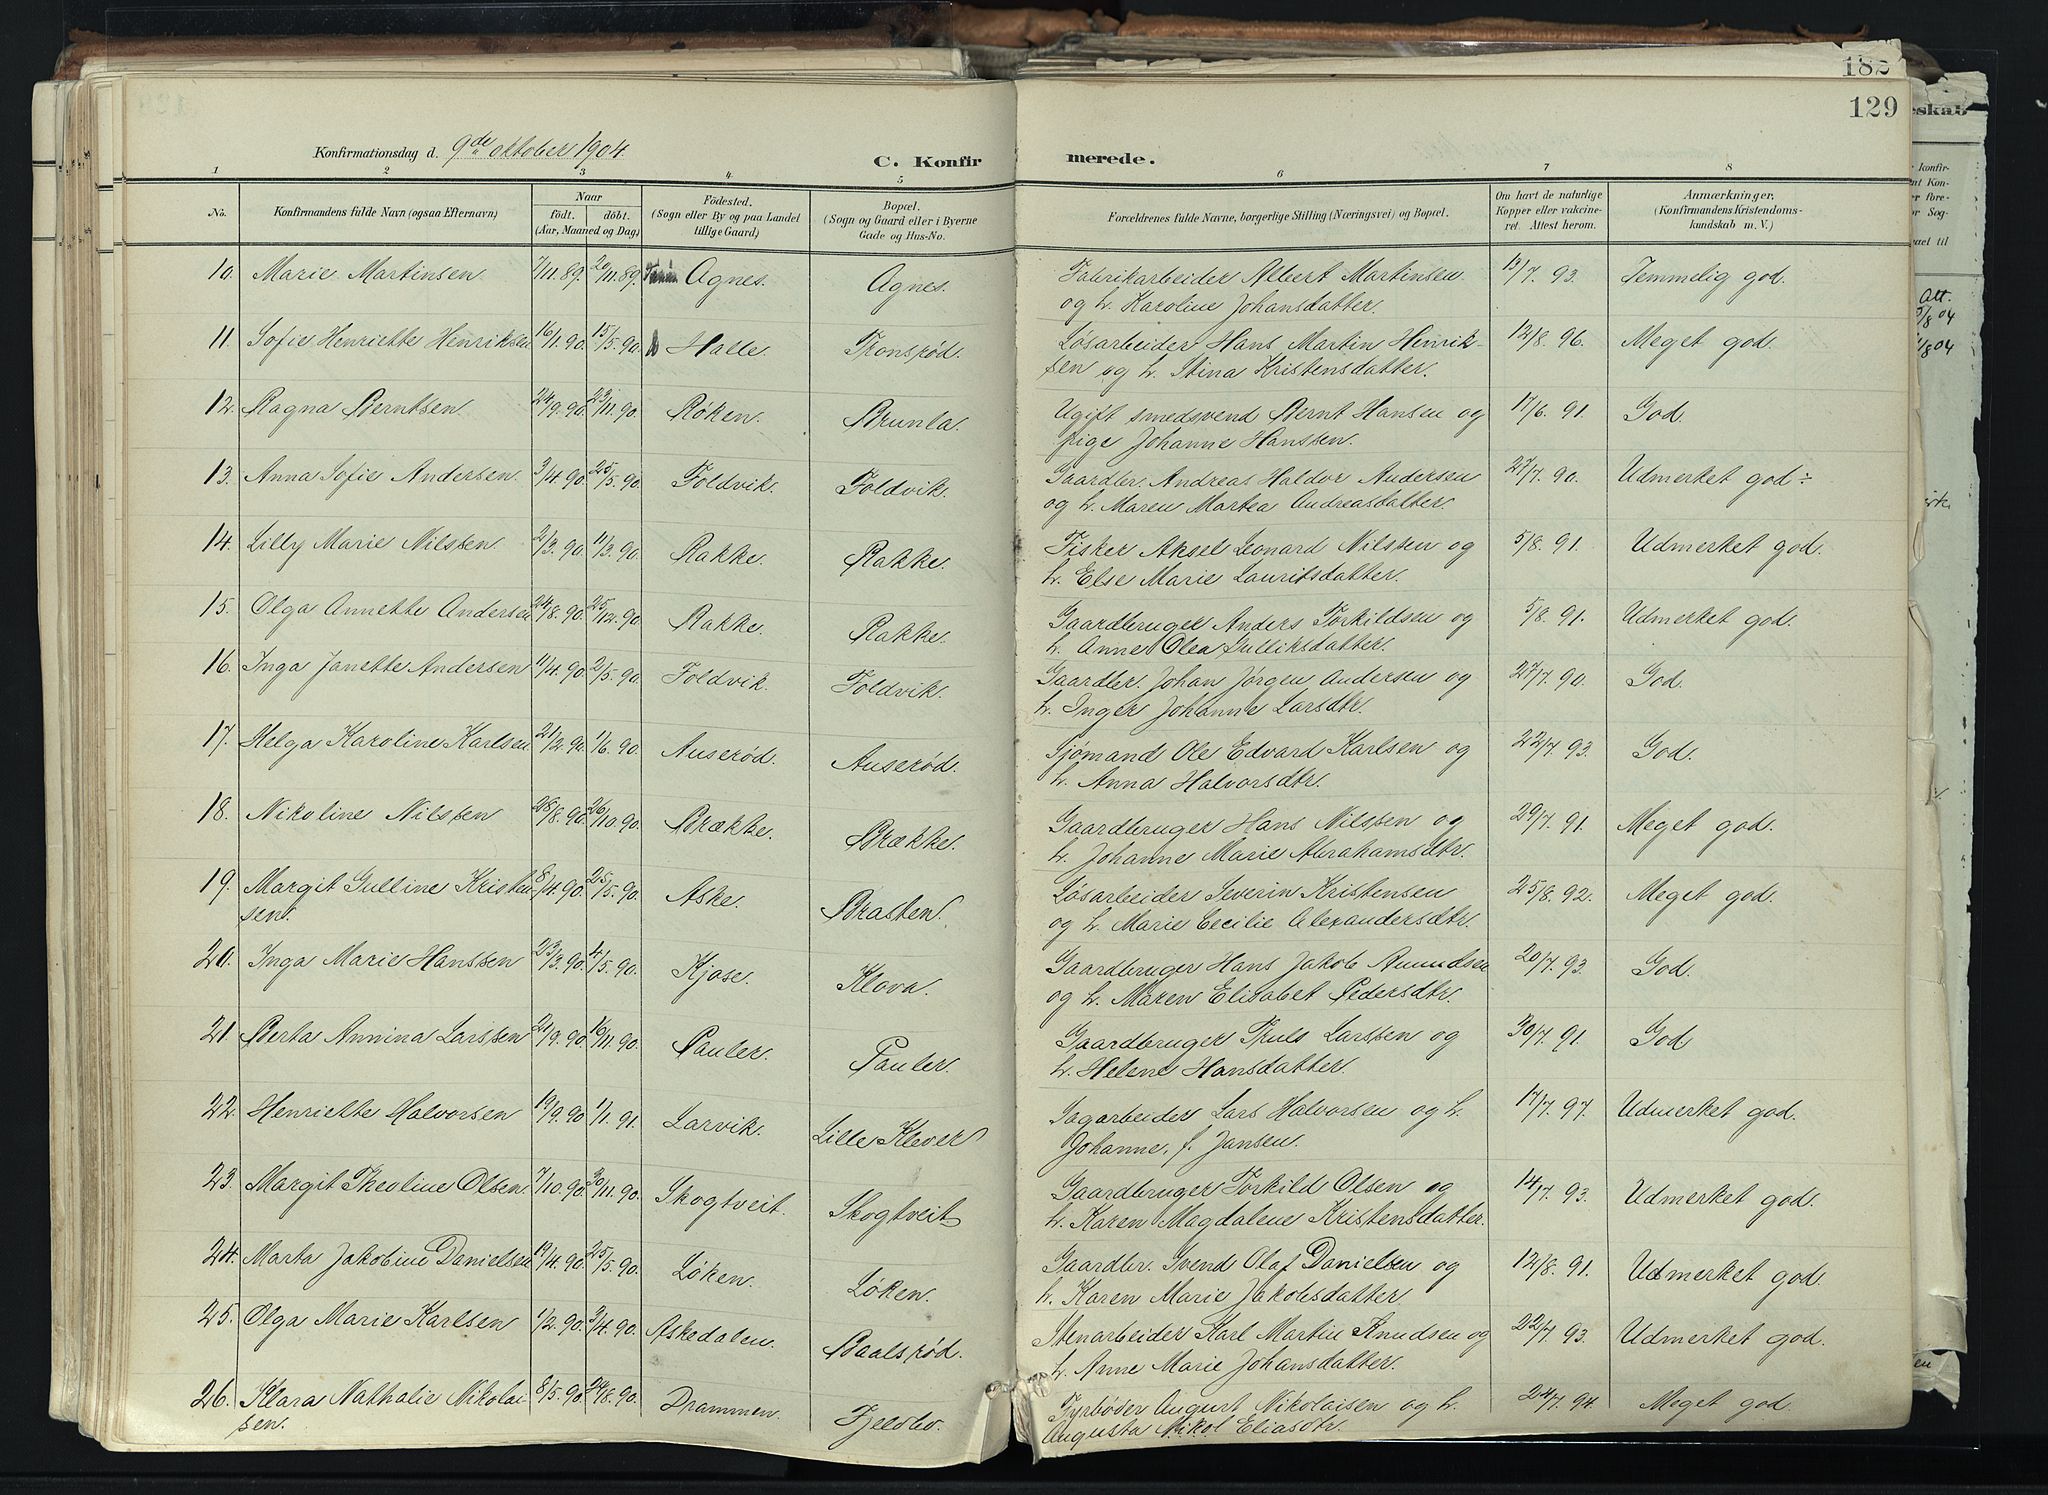 182
129
Konfirmationsdag d. 9de oktober 1904.
C. Konfirmerede.
1 2 3 4 5 6 7 8
No.
Konfirmandens fulde Navn (ogsaa Efternavn)
Naar
födt. döbt.
(Aar, Maaned og Dag)
Födested.
(Sogn eller By og paa Landet
tillige Gaard)
Bopæl.
(Sogn og Gaard eller i Byerne
Gade og Hus-No.
Forældrenes fulde Navne, borgerlige Stilling (Næringsvei) og Bopæl.
Om havt de naturlige
Kopper eller vakcine-
ret. Attest herom.
Anmærkninger,
(Konfirmandens Kristendoms-
kundskab m. V.)
10. Marie Martinsen 7/11.89. 20/11.89. Agnes. Agnes. Fabrikarbeider Albert Martinsen 13/7. 93. Temmelig god.
og h. Karoline Johansdatter.
11. Sofie Henriette Henriksen 16/1.90. 15/5.90. Halle. Tronsrød. Løsarbeider Hans Martin Henrik- 12/8. 96. Meget god.
sen og h. Stina Kristensdatter.
12. Ragna Berntsen 24/9.90. 23/11.90. Røken. Brunla. Ugift smedsvend Bernt Hansen og 17/6. 91. God.
pige Johanne Hanssen.
13. Anna Sofie Andersen. 3/4.90. 25/5.90. Foldvik. Foldvik. Gaardbr. Andreas Haldor Andersen 27/7. 90. Udmerket god ÷
og h. Maren Martea Andreasdatter.
14. Lilly Marie Nilssen. 2/3.90. 11/3.90. Rakke. Rakke. Fisker Aksel Leonard Nilssen og 5/8. 91. Udmerket god.
h. Else Marie Lauritsdatter.
15. Olga Annette Andersen 24/8.90. 25/12.90. Rakke. Rakke. Gaardbruger Anders Torkildsen og 5/8. 91. Udmerket god.
h. Anne Olea Gulliksdatter.
16. Inga Janette Andersen 11/4.90. 2/5.90. Foldvik. Foldvik. Gaardbr. Johan Jørgen Andersen og 27/7. 90. God.
h. Inger Johanne Larsdtr.
17. Helga Karoline Karlsen 21/2.90. 1/6.90. Auserød. Auserød. Sjømand Ole Edvard Karlsen og 22/7. 93. God.
h. Anna Halvorsdtr.
18. Nikoline Nilssen 28/8.90. 26/10.90. Brække. Brække. Gaardbruger Hans Nilssen og 29/7. 91. Meget god.
h. Johanne Marie Abrahamsdtr.
19. Margit Gulline Kristen- 8/4.90. 25/5.90. Aske. Brasten. Løsarbeider Severin Kristensen 25/8. 92. Meget god.
sen. og h. Marie Cecilie Alexandersdtr.
20. Inga Marie Hanssen 23/3.90. 4/5.90. Kjose. Klova. Gaardbruger Hans Jakob Amundsen 20/7. 93. God.
og h. Maren Elisabet Pedersdtr.
21. Berta Annina Larssen 21/9.90. 16/11.90. Pauler. Pauler. Gaardbruger Truls Larssen og 30/7. 91. God
h. Helene Hansdatter.
22. Henriette Halvorsen 19/9.90 1/1.91. Larvik. Lille Klever Sagarbeider Lars Halvorsen og h. 17/7. 97. Udmerket god.
Johanne, f. Jansen.
23. Margit Theoline Olsen. 7/10.90. 30/11.90. Skogtveit. Skogtveit Gaardbruger Torkild Olsen og 14/7. 93. Udmerket god.
h. Karen Magdalene Kristensdatter.
24. Marta Jakobine Danielsen 19/4.90. 25/5.90. Løken. Løken. Gaardbr. Svend Olaf Danielsen og 12/8. 91. Udmerket god.
h. Karen Marie Jakobsdatter.
25. Olga Marie Karlsen 1/2.90. 3/4.90. Askedalen. Baalsrød. Stenarbeider Karl Martin Knudsen og 22/7. 93. Udmerket god.
h. Anne Marie Johansdatter.
26. Klara Nathalie Nikolai- 8/5.90. 24/8.90. Drammen. Fjeldbo. Fyrbøder August Nikolaisen og h. 24/7. 94. Meget god.
sen. Augusta Nikol Eliasdtr.
eskab
Att.